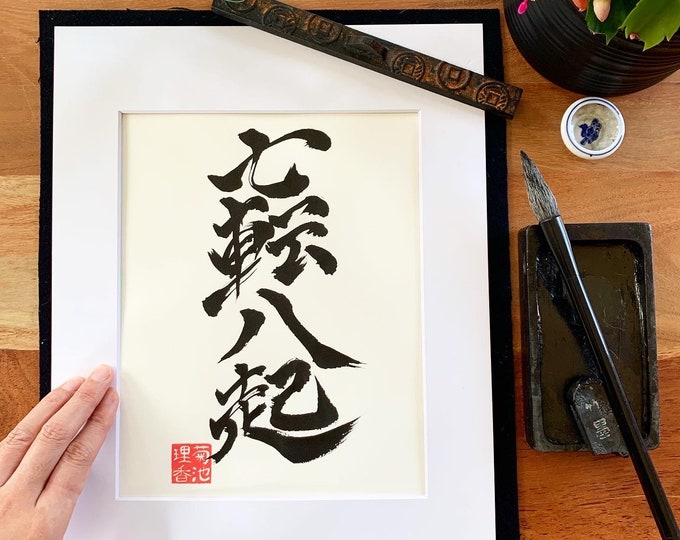 七転八起
菊池
理香